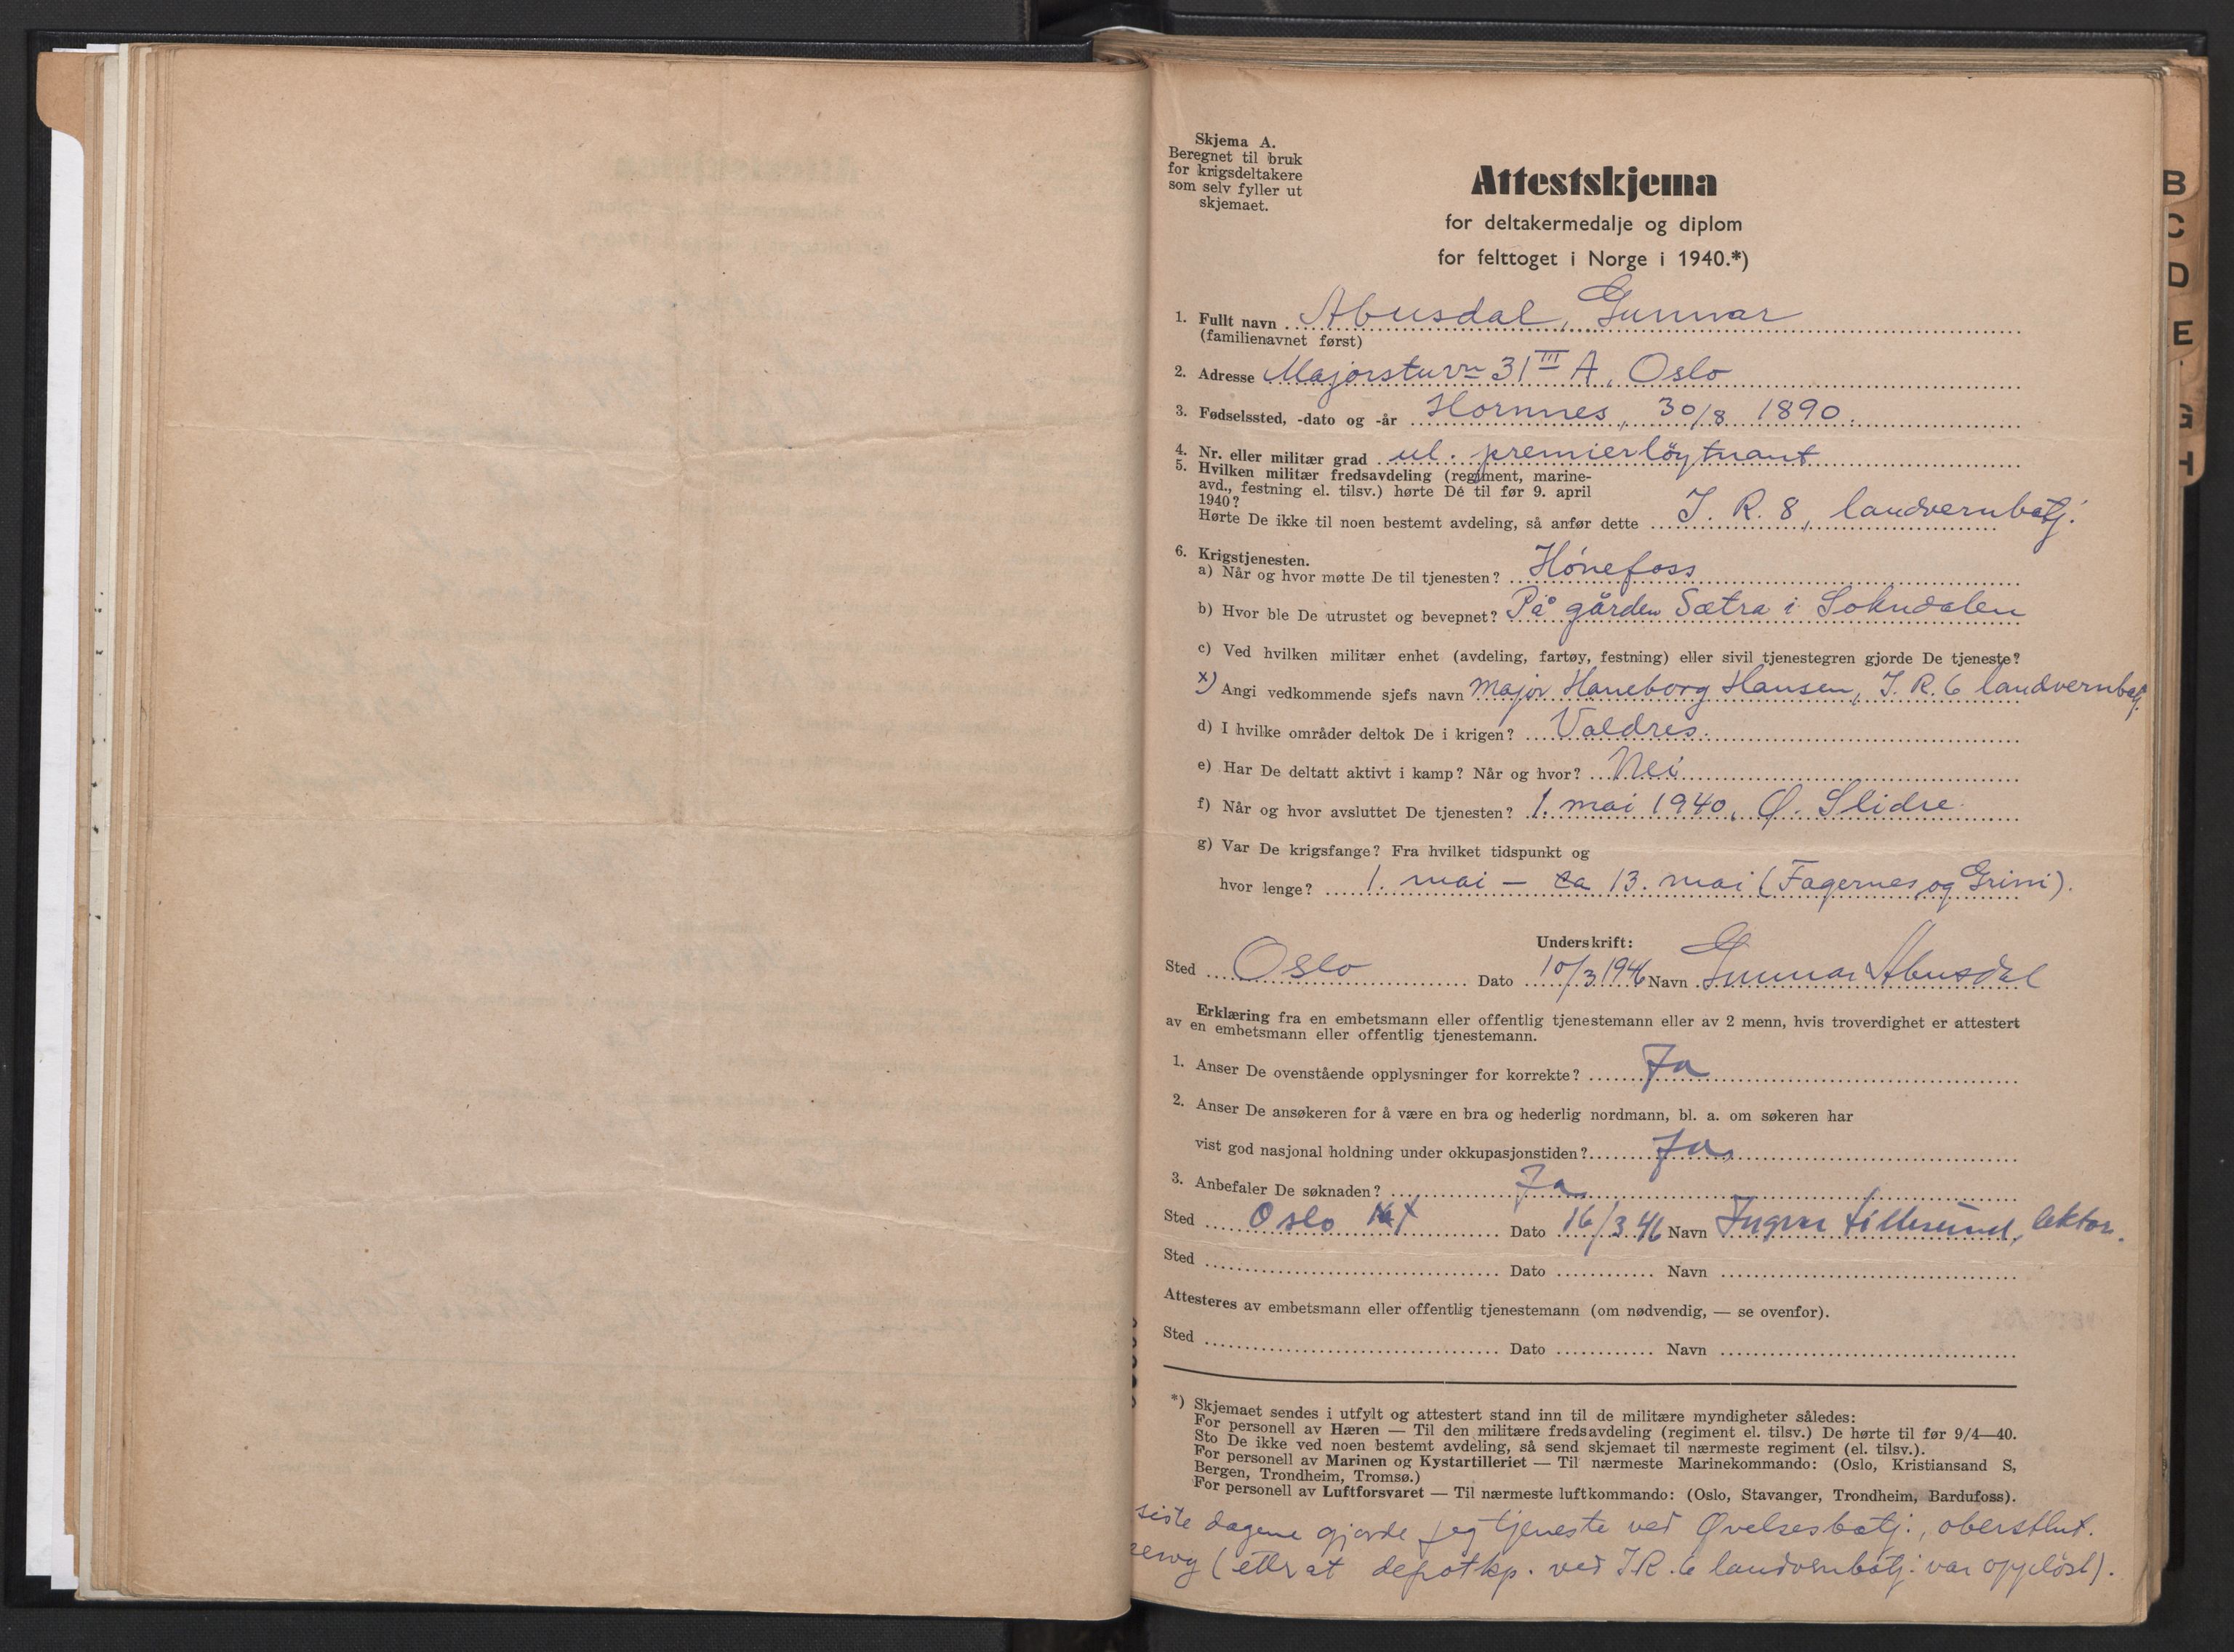 Skjema A.
Beregnet til bruk
for krigsdeltakere
som selv fyller ut
skjemaet.
Attestskjema
for deltakermedalje og diplom
for felttoget i Norge i 1940.*)
1. Fullt navn Abusdal, Gunnar
(familienavnet først)
2. Adresse Majorstuvn 31 III A, Oslo
3. Fødselssted, -dato og -år Hornnes, 30/8 1890.
4. Nr. eller militær grad ul. premierløytnant
5. Hvilken militær fredsavdeling (regiment, marine-
avd., festning el. tilsv.) hørte De til før 9. april
1940?
Hørte De ikke til noen bestemt avdeling, så anfør dette J. R. 8, landvernbatj.
6. Krigstjenesten.
a) Når og hvor møtte De til tjenesten? Hönefoss
b) Hvor ble De utrustet og bevepnet? På gården Sætra i Sokndalen
c) Ved hvilken militær enhet (avdeling, fartøy, festning) eller sivil tjenestegren gjorde De tjeneste?
x) Angi vedkommende sjefs navn Major Haneborg Hansen, J. R. 6 landvernbatj.
d) I hvilke områder deltok De i krigen? Valdres.
e) Har De deltatt aktivt i kamp? Når og hvor? Nei
f) Når og hvor avsluttet De tjenesten? 1. mai 1940, Ø. Slidre.
g) Var De krigsfange? Fra hvilket tidspunkt og
hvor lenge? 1. mai – ca 13. mai (Fagernes og Grini).
Underskrift:
Sted Oslo Dato 10/3 1946 Navn Gunnar Abusdal
Erklæring fra en embetsmann eller offentlig tjenestemann eller av 2 menn, hvis troverdighet er attestert
av en embetsmann eller offentlig tjenestemann.
1. Anser De ovenstående opplysninger for korrekte? Ja
2. Anser De ansøkeren for å være en bra og hederlig nordmann, bl. a. om søkeren har
vist god nasjonal holdning under okkupasjonstiden? Ja
3. Anbefaler De søknaden? Ja
Sted Oslo Dato 16/3 46 Navn Ingvar Lillesund, lektor.
Sted Dato Navn
Attesteres av embetsmann eller offentlig tjenestemann (om nødvendig, — se ovenfor).
Sted Dato Navn
*) Skjemaet sendes i utfylt og attestert stand inn til de militære myndigheter således:
For personell av Hæren — Til den militære fredsavdeling (regiment el. tilsv.) De hørte til før 9/4—40.
Sto De ikke ved noen bestemt avdeling, så send skjemaet til nærmeste regiment (el. tilsv.).
For personell av Marinen og Kystartilleriet — Til nærmeste Marinekommando: (Oslo, Kristiansand S,
Bergen, Trondheim, Tromsø.)
For personell av Luftforsvaret — Til nærmeste luftkommando: (Oslo, Stavanger, Trondheim, Bardufoss).
siste dagene gjorde jeg tjeneste ved Øvelsesbatj., oberstløt.
(etter at depotkp. ved J.R. 6 landvernbatj. var oppløst).
B
C
D
E
G
H